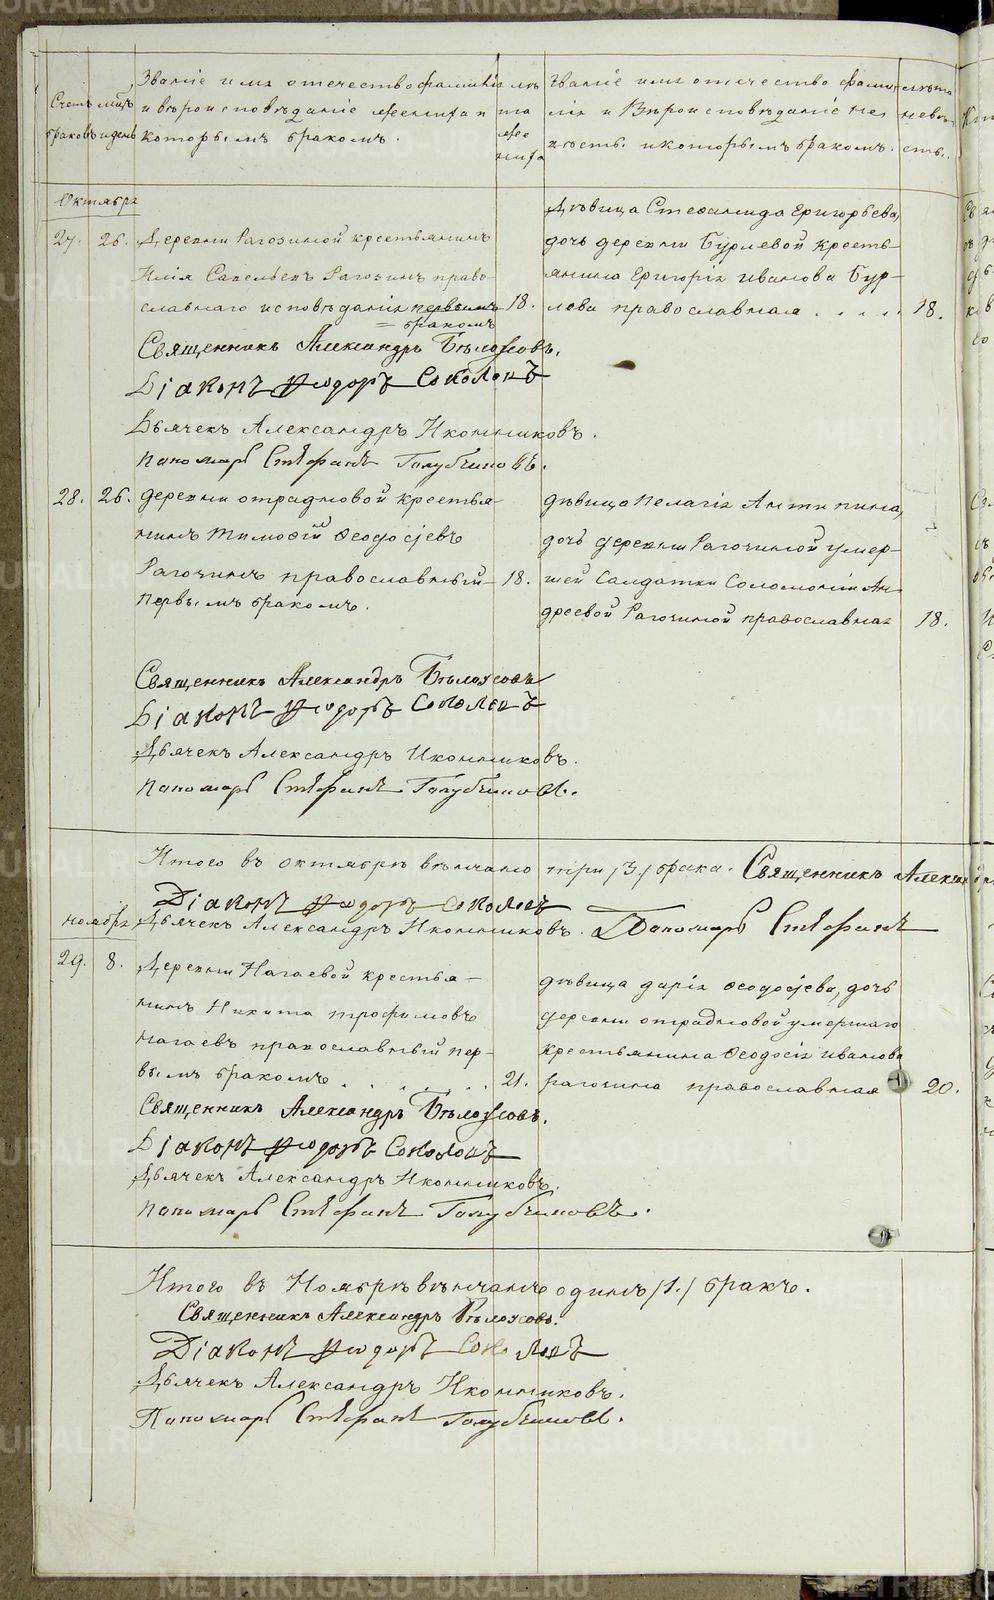 Счетъ браковъ
мцъ и день
Званіе имя отечество фамилія
и вѣроисповѣданіе жениха и
которымъ бракомъ.
лѣта жениха
Званіе имя отечество фамилія
и вѣроисповѣданіе не
вѣсты и которымъ бракомъ.
лѣта невѣсты.
Октября
27. 26. Деревни Рагозиной крестьянинъ
Илія Савельевъ Рагозинъ право-
славнаго исповѣданія первымъ 18.
= бракомъ
Дѣвица Стефанида Григорьева,
дочь деревни Бурлевой кресть-
янина Григорія Иванова Бур-
лова православная . . . . . 18.
Священникъ Александръ Бѣлоусовъ.
Діаконъ Ѳеодоръ Соколовъ
Дьячекъ Александръ Иконниковъ.
Пономарь Стефанъ Голубчиковъ.
28. 26. деревни отрадновой крестья-
нинъ Тимофій Феодосіевъ
Рагозинъ православный 18.
первымъ бракомъ.
дѣвица Пелагія Антипина,
дочь деревни Рагозиной умер-
шей Салдатки Соломоніи Ан-
дреевой Рагозиной православная 18.
Священникъ Александръ Бѣлоусовъ
Діаконъ Ѳеодоръ Соколовъ
Дьячекъ Александръ Иконниковъ.
Пономарь Стефанъ Голубчиковъ.
Итого въ октябрѣ вѣнчано три /3./ брака. Священникъ Александръ
Діаконъ Ѳеодоръ Соколовъ
ноября Дьячекъ Александръ Иконниковъ. Пономарь Стефанъ
29. 8. Деревни Нагаевой крестья-
нинъ Никита трофимовъ
Нагаевъ православный пер-
вымъ бракомъ . . . . . . 21.
дѣвица дарія феодосіева, дочь
деревни отрадновой умершаго
крестьянина феодосія иванова
рагозина православная 20.
Священникъ Александръ Бѣлоусовъ.
Діаконъ Ѳеодоръ Соколовъ
Дьячекъ Александръ Иконниковъ.
Пономарь Стефанъ Голубчиковъ.
Итого въ Ноябрѣ вѣнчанъ одинъ /1./ бракъ.
Священникъ Александръ Бѣлоусовъ.
Діаконъ Ѳеодоръ Соколовъ
Дьячекъ Александръ Иконниковъ.
Пономарь Стефанъ Голубчиковъ.
METRIKI.GASO-URAL.RU